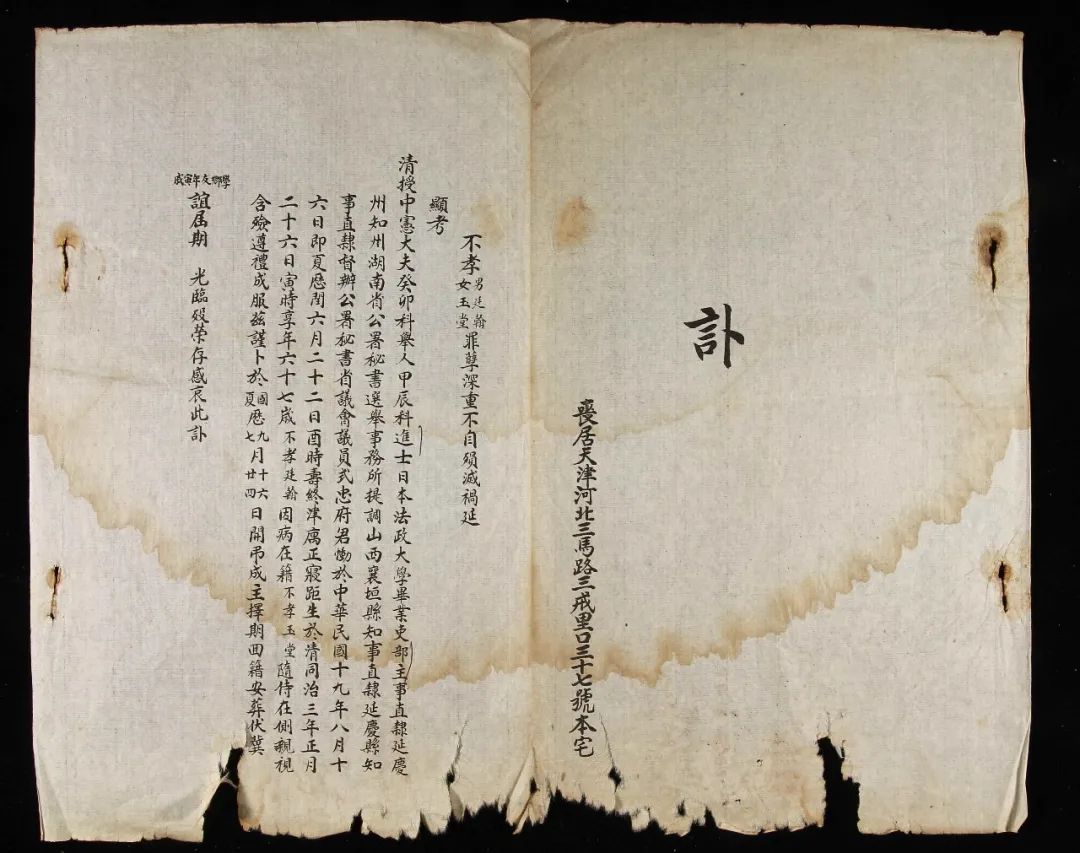 訃
喪居天津河北三馬路三戒里口三十七號本宅
不孝男廷翰女玉堂罪孽深重不自殞滅禍延
顯考
清授中憲大夫癸卯科舉人甲辰科進士日本法政大學畢業吏部主事直隸延慶
州知州湖南省公署秘書選舉事務所提調山西襄垣縣知事直隸延慶縣知
事直隸督辦公署秘書省議會議員式忠府君慟於中華民國十九年八月十
六日即夏歷閏六月二十二日酉時壽終津寓正寢距生於清同治三年正月
二十六日寅時享年六十七歲不孝廷翰因病在籍不孝玉堂隨侍在側親視
含殮遵禮成服茲謹卜於國歷九月十六夏歷七月廿四日開弔成主擇期回籍安葬伏冀
學鄉友年寅戚誼屆期 光臨歿榮存感哀此訃